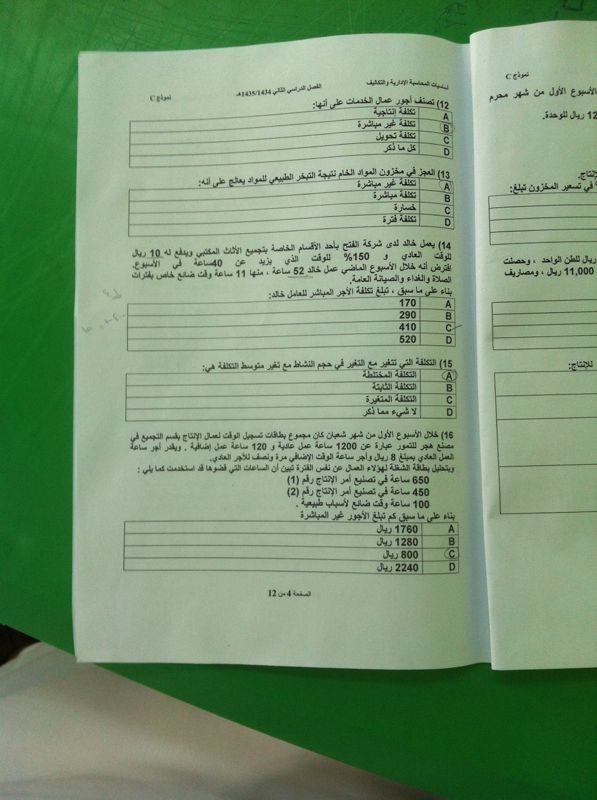 أساسيات المحاسبة الإدارية والتكاليف
الفصل الدراسي الثاني 1435/1434هـ
نموذج C
12) تصنف أجور عمال الخدمات على أنها:
A تكلفة إنتاجية
B تكلفة غير مباشرة
C تكلفة تحويل
D كل ما ذكر
13) العجز في مخزون المواد الخام نتيجة التبخر الطبيعي للمواد يعالج على أنه:
A تكلفة غير مباشرة
B تكلفة مباشرة
C خسارة
D تكلفة فترة
14) يعمل خالد لدى شركة الفتح بأحد الأقسام الخاصة بتجميع الأثاث المكتبي ويدفع له 10 ريال
للوقت العادي و 150% للوقت الذي يزيد عن 40ساعة في الأسبوع.
افترض أنه خلال الأسبوع الماضي عمل خالد 52 ساعة ، منها 11 ساعة وقت ضائع خاص بفترات
الصلاة والغداء والصيانة العامة.
بناء على ما سبق ، تبلغ تكلفة الأجر المباشر للعامل خالد:
A 170
B 290
C 410
D 520
15) التكلفة التي تتغير مع التغير في حجم النشاط مع تغير متوسط التكلفة هي:
A التكلفة المختلطة
B التكلفة الثابتة
C التكلفة المتغيرة
D لا شيء مما ذكر
16) خلال الأسبوع الأول من شهر شعبان كان مجموع بطاقات تسجيل الوقت لعمال الإنتاج بقسم التجميع في
مصنع هجر للتمور عبارة عن 1200 ساعة عمل عادية و 120 ساعة عمل إضافية . ويقدر أجر ساعة
العمل العادي بمبلغ 8 ريال وأجر ساعة الوقت الإضافي مرة ونصف للأجر العادي.
وبتحليل بطاقة الشغلة لهؤلاء العمال عن نفس الفترة تبين أن الساعات التي قضوها قد استخدمت كما يلي :
650 ساعة في تصنيع أمر الإنتاج رقم (1)
450 ساعة في تصنيع أمر الإنتاج رقم (2)
100 ساعة وقت ضائع لأسباب طبيعية .
بناء على ما سبق كم تبلغ الأجور غير المباشرة
A 1760 ريال
B 1280 ريال
C 800 ريال
D 2240 ريال
الصفحة 4 من 12
نموذج C
الأسبوع الأول من شهر محرم
12 ريال للوحدة.
في تسعير المخزون تبلغ:
ريال للطن الواحد ، وحصلت
11,000 ريال ، ومصاريف
للإنتاج: